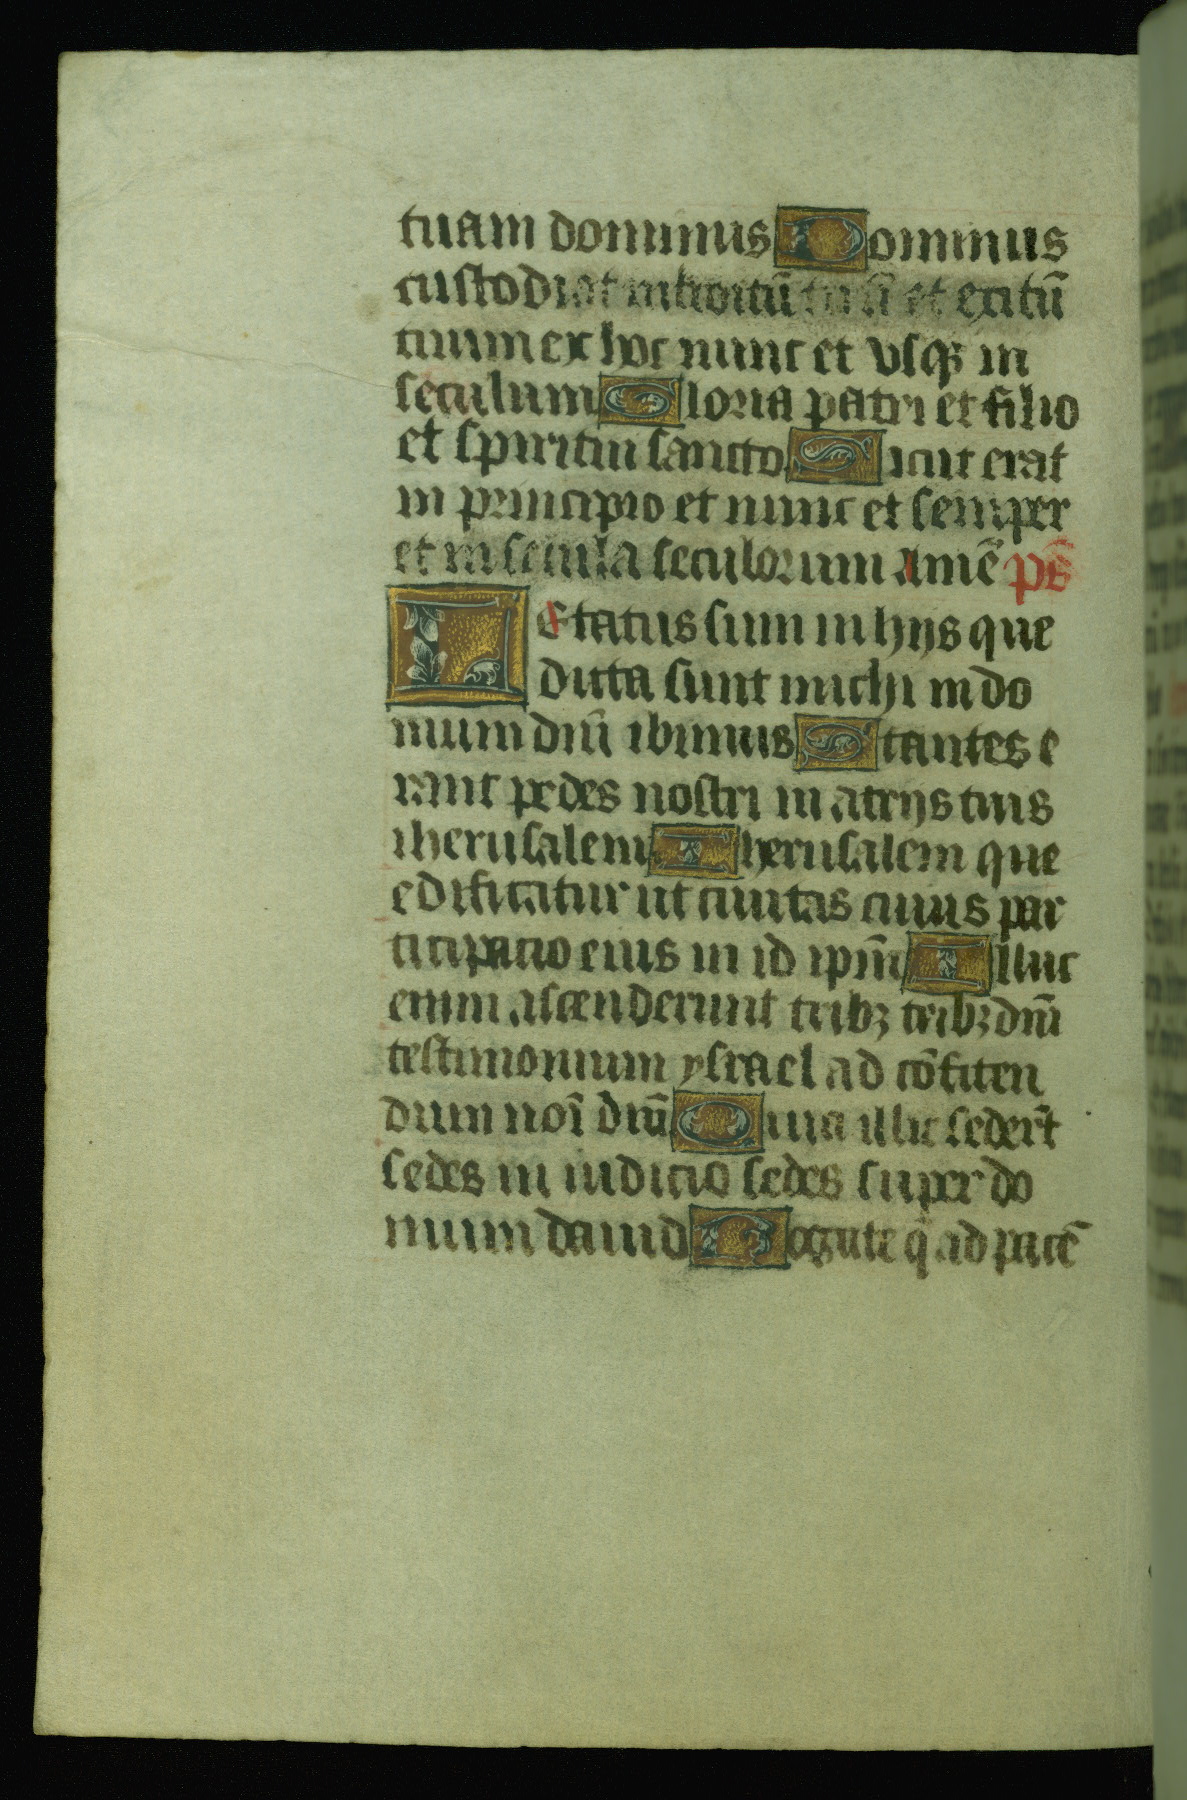 tuam dominus Dominus
custodiat introitū tuū et exitū
tuum ex hoc nunc et vsqꝫ in
seculum Gloria patri et filio
et spiritui sancto Sicut erat
in principio et nunc et semper
et in secula seculorum Amē ps̄
Letatus sum in hijs que
dicta sunt michi in do
mum dn̄i ibimus Stantes e
rant pedes nostri in atrijs tuis
iherusalem Iherusalem que
edificatur ut ciuitas cuius par
ticipatio eius in id ipm̄ Illuc
enim ascenderunt tribꝫ tribꝫ dn̄i
testimonium ysrael ad cōfiten
dum noī dn̄i Quia illic seder̄t
sedes in iudicio sedes super do
mum dauid Rogate q̄ ad pacē